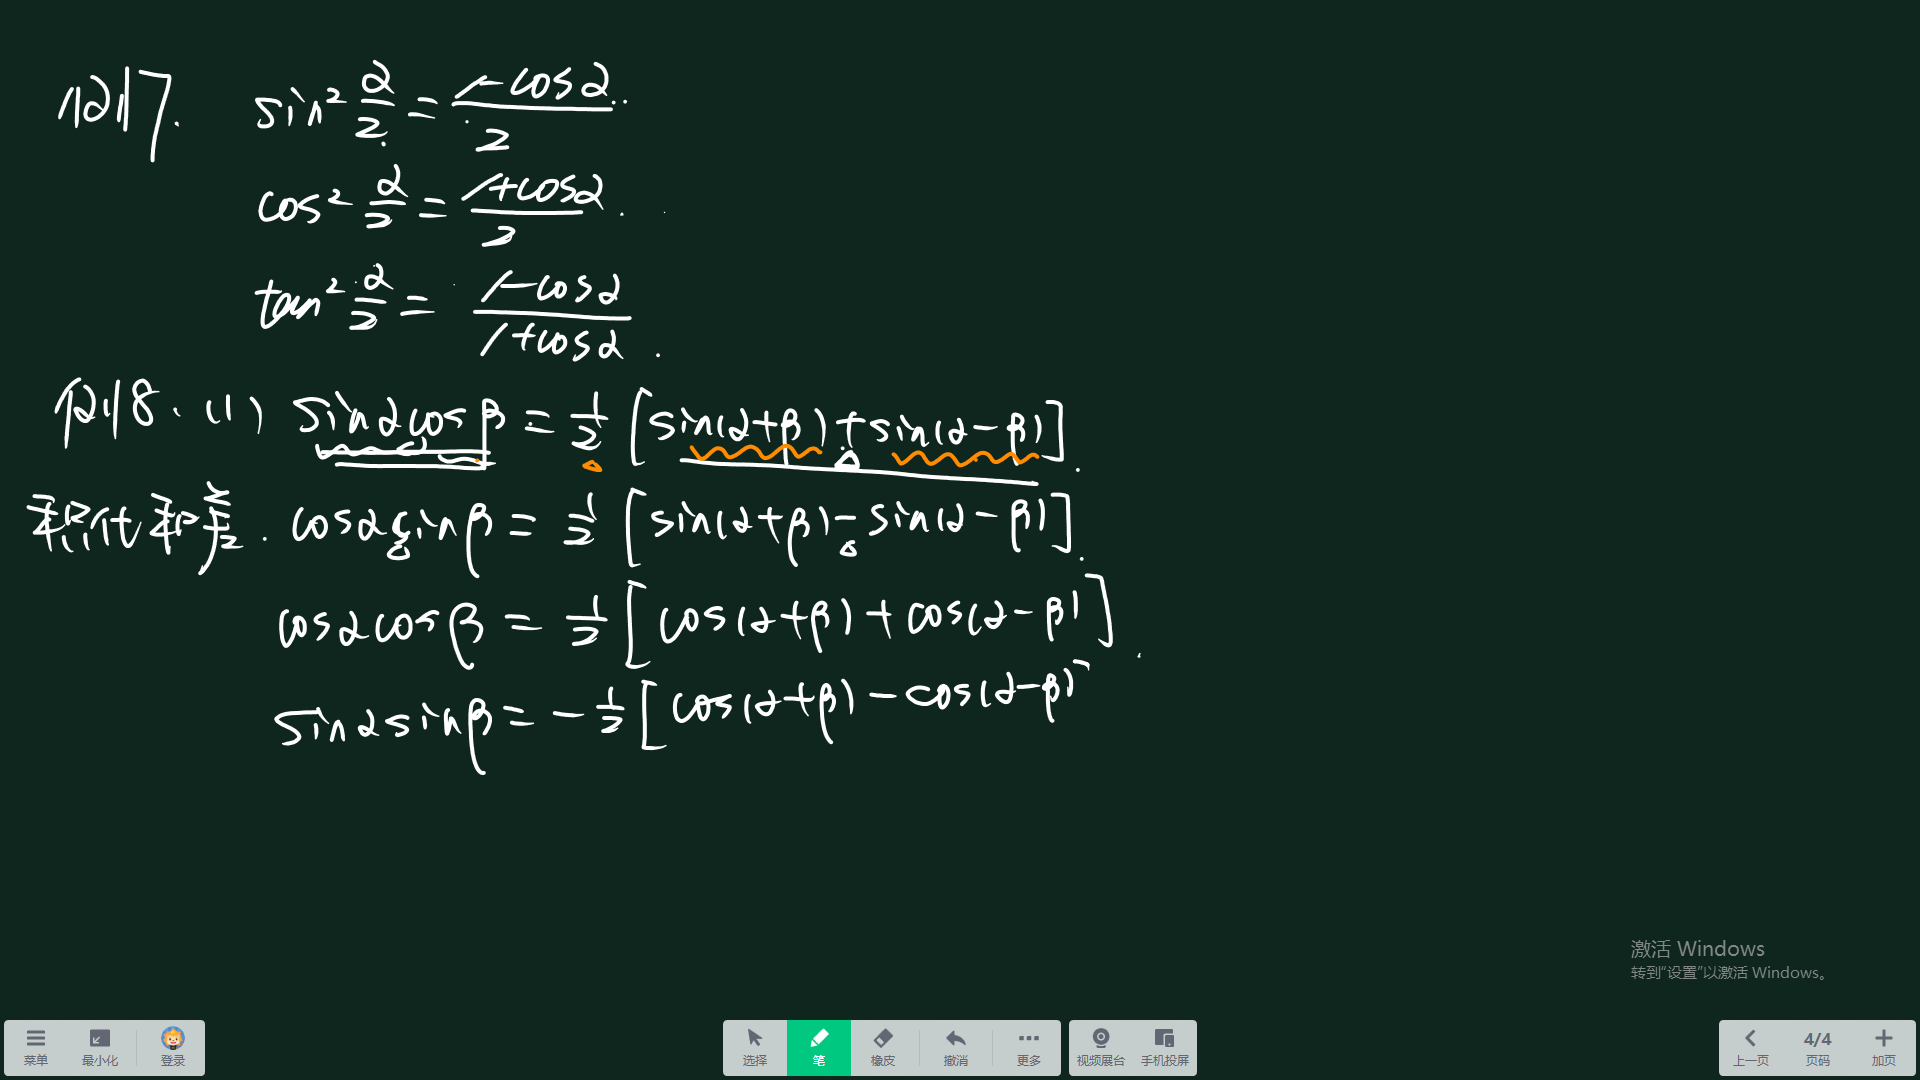 例7. sin² α/2 = (1-cosα)/2.
cos² α/2 = (1+cosα)/2.
tan² α/2 = (1-cosα)/(1+cosα).
例8. (1) sinαcosβ = 1/2 [sin(α+β)+sin(α-β)].
积化和差. cosαsinβ = 1/2 [sin(α+β)-sin(α-β)].
cosαcosβ = 1/2 [cos(α+β)+cos(α-β)].
sinαsinβ = -1/2 [cos(α+β)-cos(α-β)
激活 Windows
转到“设置”以激活 Windows。
菜单 最小化 登录 选择 笔 橡皮 撤消 更多 视频展台 手机投屏 上一页 4/4 页码 加页